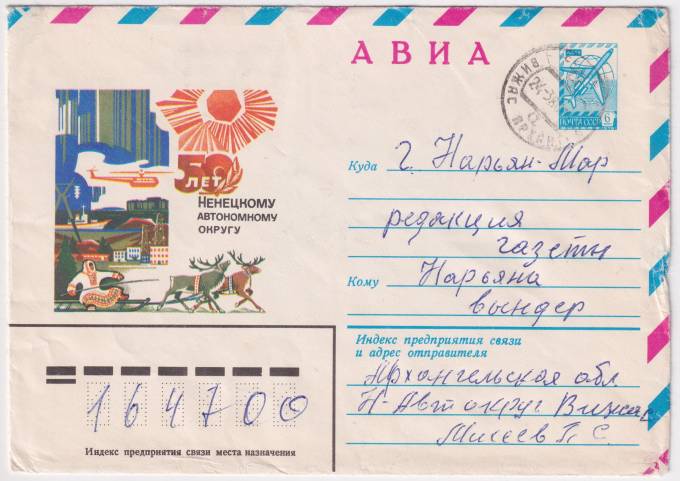 АВИА
ПОЧТА СССР 6
ВИЖАС АРХАНГ.
24
50
ЛЕТ
НЕНЕЦКОМУ
АВТОНОМНОМУ
ОКРУГУ
Куда г. Нарьян-Мар
редакция
газеты
Кому Нарьяна
вындер
Индекс предприятия связи
и адрес отправителя
Архангельская обл.
Н-Авт округ Вижас
П. С.
164700
Индекс предприятия связи места назначения